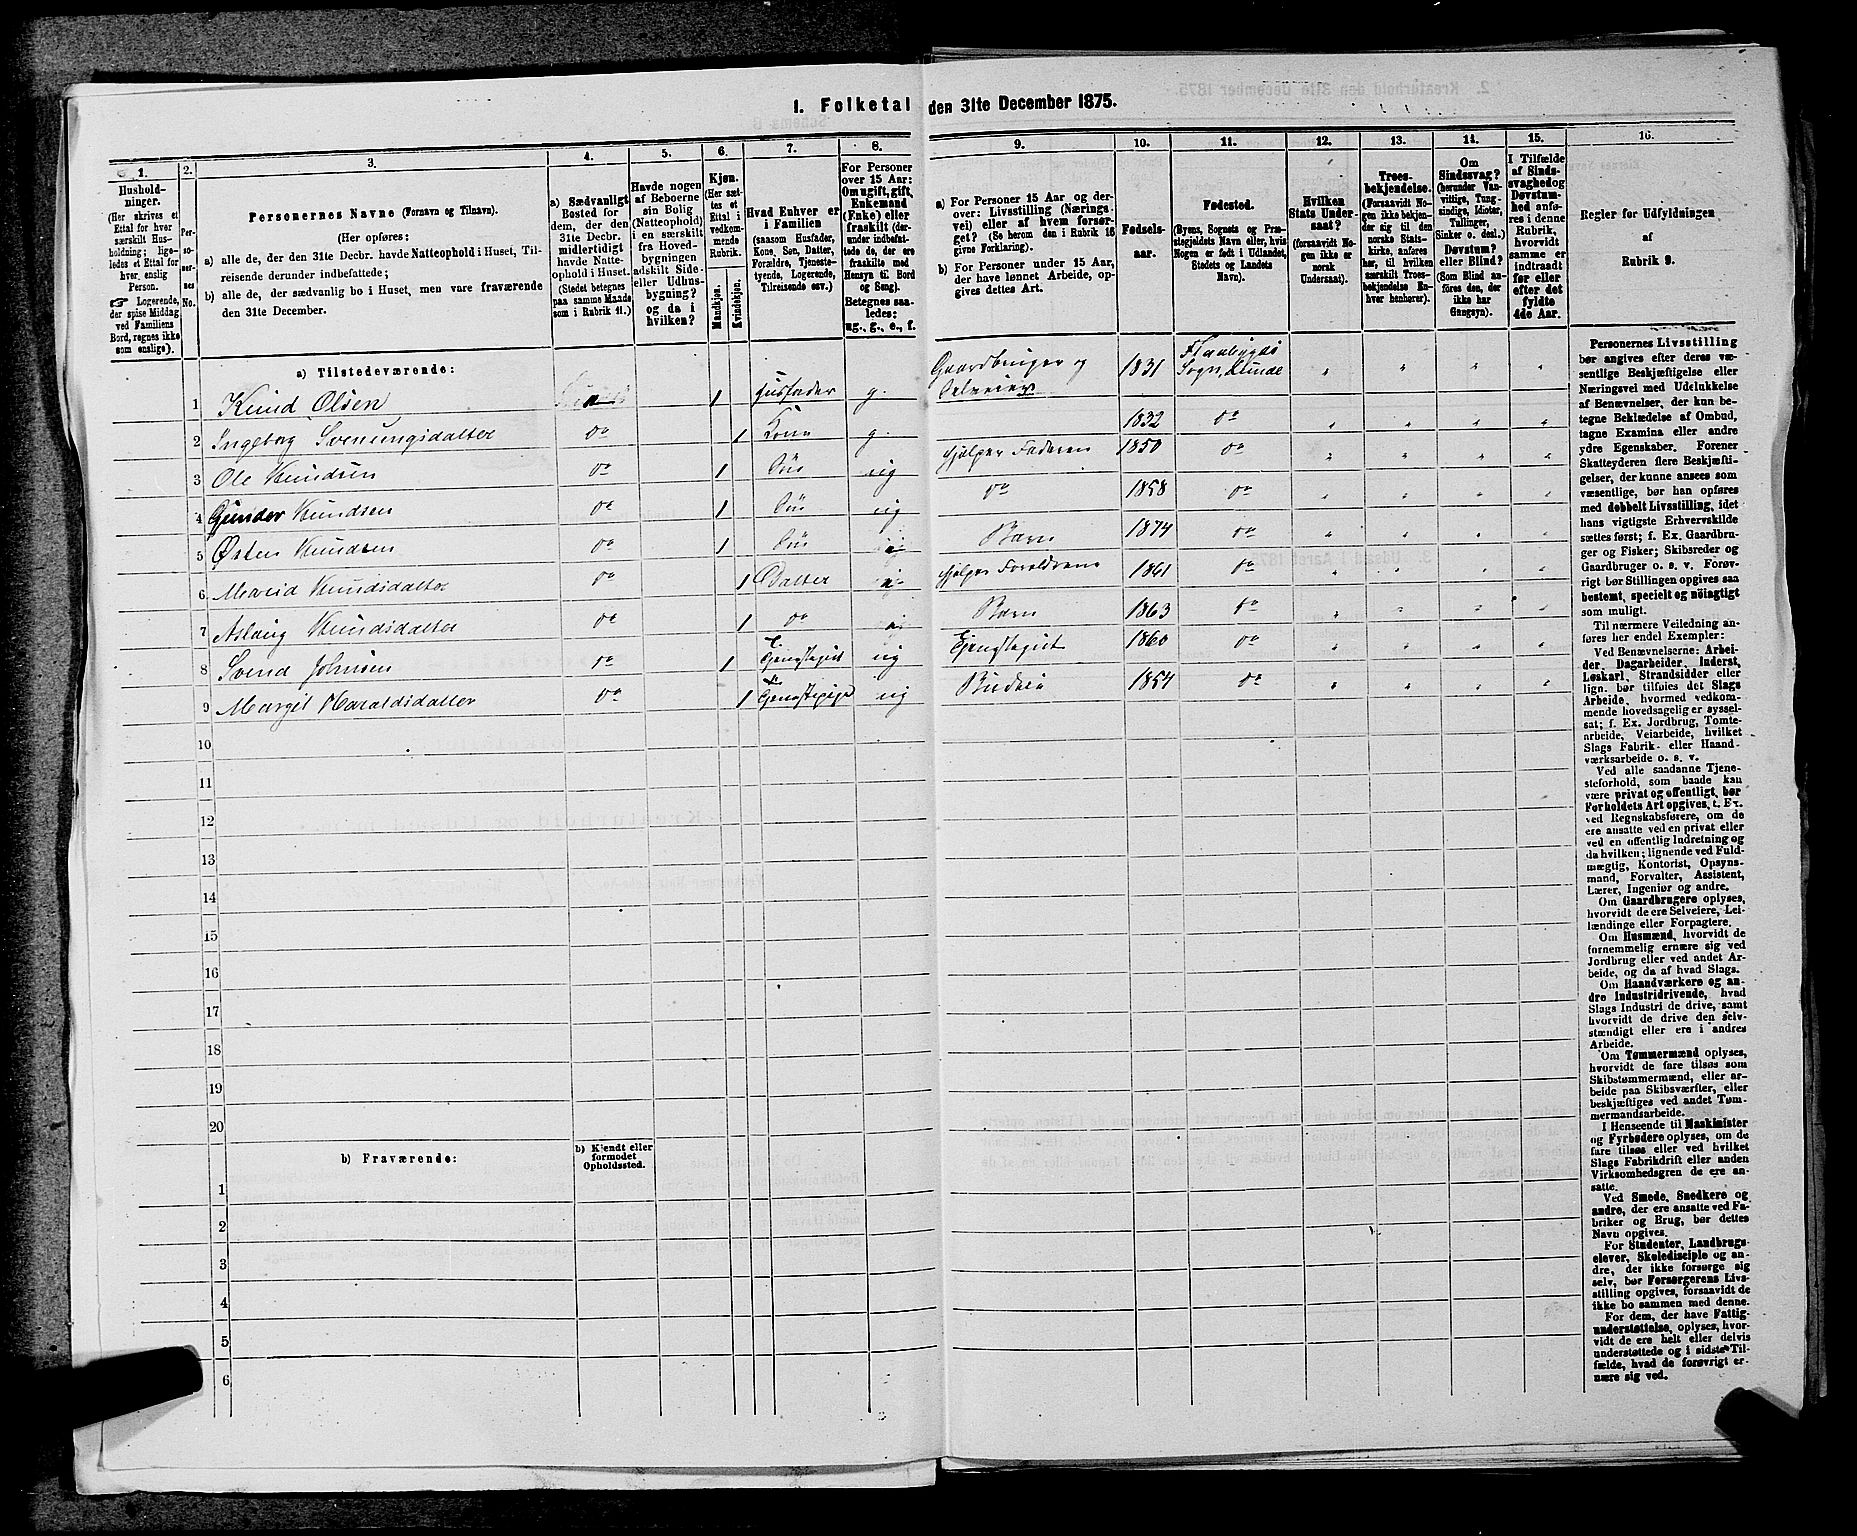 1. Folketal den 31te December 1875.
1.
2.
3.
4.
5.
6.
7.
8.
9.
10.
11.
12.
13.
14.
15.
16.
Hushold-
ninger.
(Her skrives et
Ettal for hver
særskilt Hus-
holdning; lige-
ledes et Ettal for
hver, enslig
Person.
☞ Logerende,
der spise Middag
ved Familiens
Bord, regnes ikke
som enslige).
Per-
so-
ner-
nes
No.
Personernes Navne (Fornavn og Tilnavn).
(Her opføres:
a) alle de, der den 31te Decbr. havde Natteophold i Huset, Til-
reisende derunder indbefattede;
b) alle de, der sædvanlig bo i Huset, men vare fraværende
den 31te December.
a) Sædvanligt
Bosted for
dem, der den
31te Decbr.
midlertidigt
havde Natte-
ophold i Huset.
(Stedet betegnes
paa samme Maade
som i Rubrik 11.)
Havde nogen
af Beboerne
sin Bolig
(Natteophold)
i en særskilt
fra Hoved-
bygningen
adskilt Side-
eller Udhus-
bygning?
og da i
hvilken?
Kjøn.
(Her sæt-
tes et
Ettal i
vedkom-
mende
Rubrik.
Mandkjøn.
Kvindekjøn.
Hvad Enhver er
i Familien
(saasom Husfader,
Kone, Søn, Datter,
Forældre, Tjeneste-
tyende, Logerende,
Tilreisende osv.)
For Personer
over 15 Aar:
Om ugift, gift,
Enkemand
(Enke) eller
fraskilt (der-
under indbefat-
tede de, der ere
fraskilte med
Hensyn til Bord
og Seng).
Betegnes saa-
ledes:
ug., g., e., f.
a) For Personer 15 Aar og der-
over: Livsstilling (Nærings-
vei) eller af hvem forsør-
get? (Se herom den i Rubrik 16
givne Forklaring).
b) For Personer under 15 Aar,
der have lønnet Arbeide, op-
gives dettes Art.
Fødsels-
aar.
Fødested.
(Byens, Sognets og Præ-
stegjeldets Navn eller, hvis
Nogen er født i Udlandet,
Stedets og Landets
Navn).
Hvilken
Stats Under-
saat?
(forsaavidt No-
gen ikke er
norsk
Undersaat).
Troes-
bekjendelse.
(Forsaavidt No-
gen ikke bekjen-
der sig til den
norske Stats-
kirke, anføres
her, til hvilken
særskilt Troes-
bekjendelse En-
hver henhører).
Om
Sindssvag?
(herunder Van-
vittige, Tung-
sindige, Idioter,
Tullinger,
Sinker o. desl.)
Døvstum?
eller Blind?
(Som Blind an-
føres den, der
ikke har
Gangsyn).
I Tilfælde
af Sinds-
svaghed og
Døvstum-
hed anfø-
res i denne
Rubrik,
hvorvidt
samme er
indtraadt
før eller
efter det
fyldte
4de Aar.
Regler for Udfyldningen
af
Rubrik 9.
a) Tilstedeværende:
1 Knud Olsen 1 Husfader g. Gaardbruger og Selveier 1831 Flaabygds Sogn, " " " "
2 Ingeborg Svenungsdatter do 1 Kone g. 1832 do " " " "
3 Ole Knudsen do 1 Søn ug hjælper Faderen 1850 do " " " "
4 Gunder Knudsen do 1 Søn ug do 1858 do " " " "
5 Østen Knudsen do 1 Søn Barn 1874 do " " " "
6 Knudsdatter do 1 Datter hjælper Forældrene 1861 do " " " "
7 Aslaug Knudsdatter do 1 do Barn 1863 do " " " "
8 Svend Johnsen do 1 ug 1860 do " " " "
9 Margit Haraldsdatter do 1 ug Budeie 1854 do " " " "
10
11
12
13
14
15
16
17
18
19
20
b) Fraværende:
b) Kjendt eller
formodet
Opholdssted.
1
2
3
4
5
6
Personernes Livsstilling
bør angives efter deres væ-
sentlige Beskjæftigelse eller
Næringsvei med Udelukkelse
af Benævnelser, der kun be-
tegne Beklædelse af Ombud,
tagne Examina eller andre
ydre Egenskaber. Forener
Skatteyderen flere Beskjæfti-
gelser, der kunne ansees som
væsentlige, bør han opføres
med dobbelt Livsstilling, idet
hans vigtigste Erhvervskilde
sættes først; f. Ex. Gaardbru-
ger og Fisker; Skibsreder og
Gaardbruger o. s. v. Forøv-
rigt bør Stillingen opgives saa
bestemt, specielt og nöiagtigt
som muligt.
Til nærmere Veiledning an-
føres her endel Exempler:
Ved Benævnelserne: Arbei-
der, Dagarbeider, Inderst,
Løskarl, Strandsidder eller
lign. bør tilføies det Slags
Arbeide, hvormed vedkom-
mende hovedsagelig er syssel-
sat; f. Ex. Jordbrug, Tomte-
arbeide, Veiarbeide, hvilket
Slags Fabrik- eller Haand-
værksarbeide o. s. v.
Ved alle saadanne Tjene-
steforhold, som baade kan
være privat og offentligt, bør
Forholdets Art opgives, t. Ex.
ved Regnskabsførere, om de
ere ansatte ved en privat eller
ved en offentlig Indretning og
da hvilken; lignende ved Fuld-
mægtig, Kontorist, Opsyns-
mand, Forvalter, Assistent,
Lærer, Ingeniør og andre.
Om Gaardbrugere oplyses,
hvorvidt de ere Selveiere, Lei-
lændinge eller Forpagtere.
Om Husmænd, hvorvidt de
fornemmelig ernære sig ved
Jordbrug eller ved andet Ar-
beide, og da af hvad Slags.
Om Haandværkere og an-
dre Industridrivende, hvad
Slags Industri de drive, samt
hvorvidt de drive den selv-
stændigt eller ere i andres
Arbeide.
Om Tømmermænd oplyses,
hvorvidt de fare tilsøs som
Skibstømmermænd, eller ar-
beide paa Skibsværfter, eller
beskjæftiges ved andet Tøm-
mermandsarbeide.
I Henseende til Maskinister
og Fyrbødere oplyses, om de
fare tilsøs eller ved hvilket
Slags Fabrikdrift eller anden
Virksomhedsgren de ere an-
satte.
Ved Smede, Snedkere og
andre, der ere ansatte ved Fa-
briker og Brug, bør dettes
Navn opgives.
For Studenter, Landbrugs-
elever, Skoledisciple og an-
dre, der ikke forsørge sig
selv, bør Forsørgerens Livs-
stilling opgives, forsaavidt de
ikke bo sammen med denne.
For dem, der have Fattig-
understøttelse, oplyses, hvor-
vidt de ere helt eller delvis
understøttede og i sidste Til-
fælde, hvad de forøvrigt er-
nære sig ved.